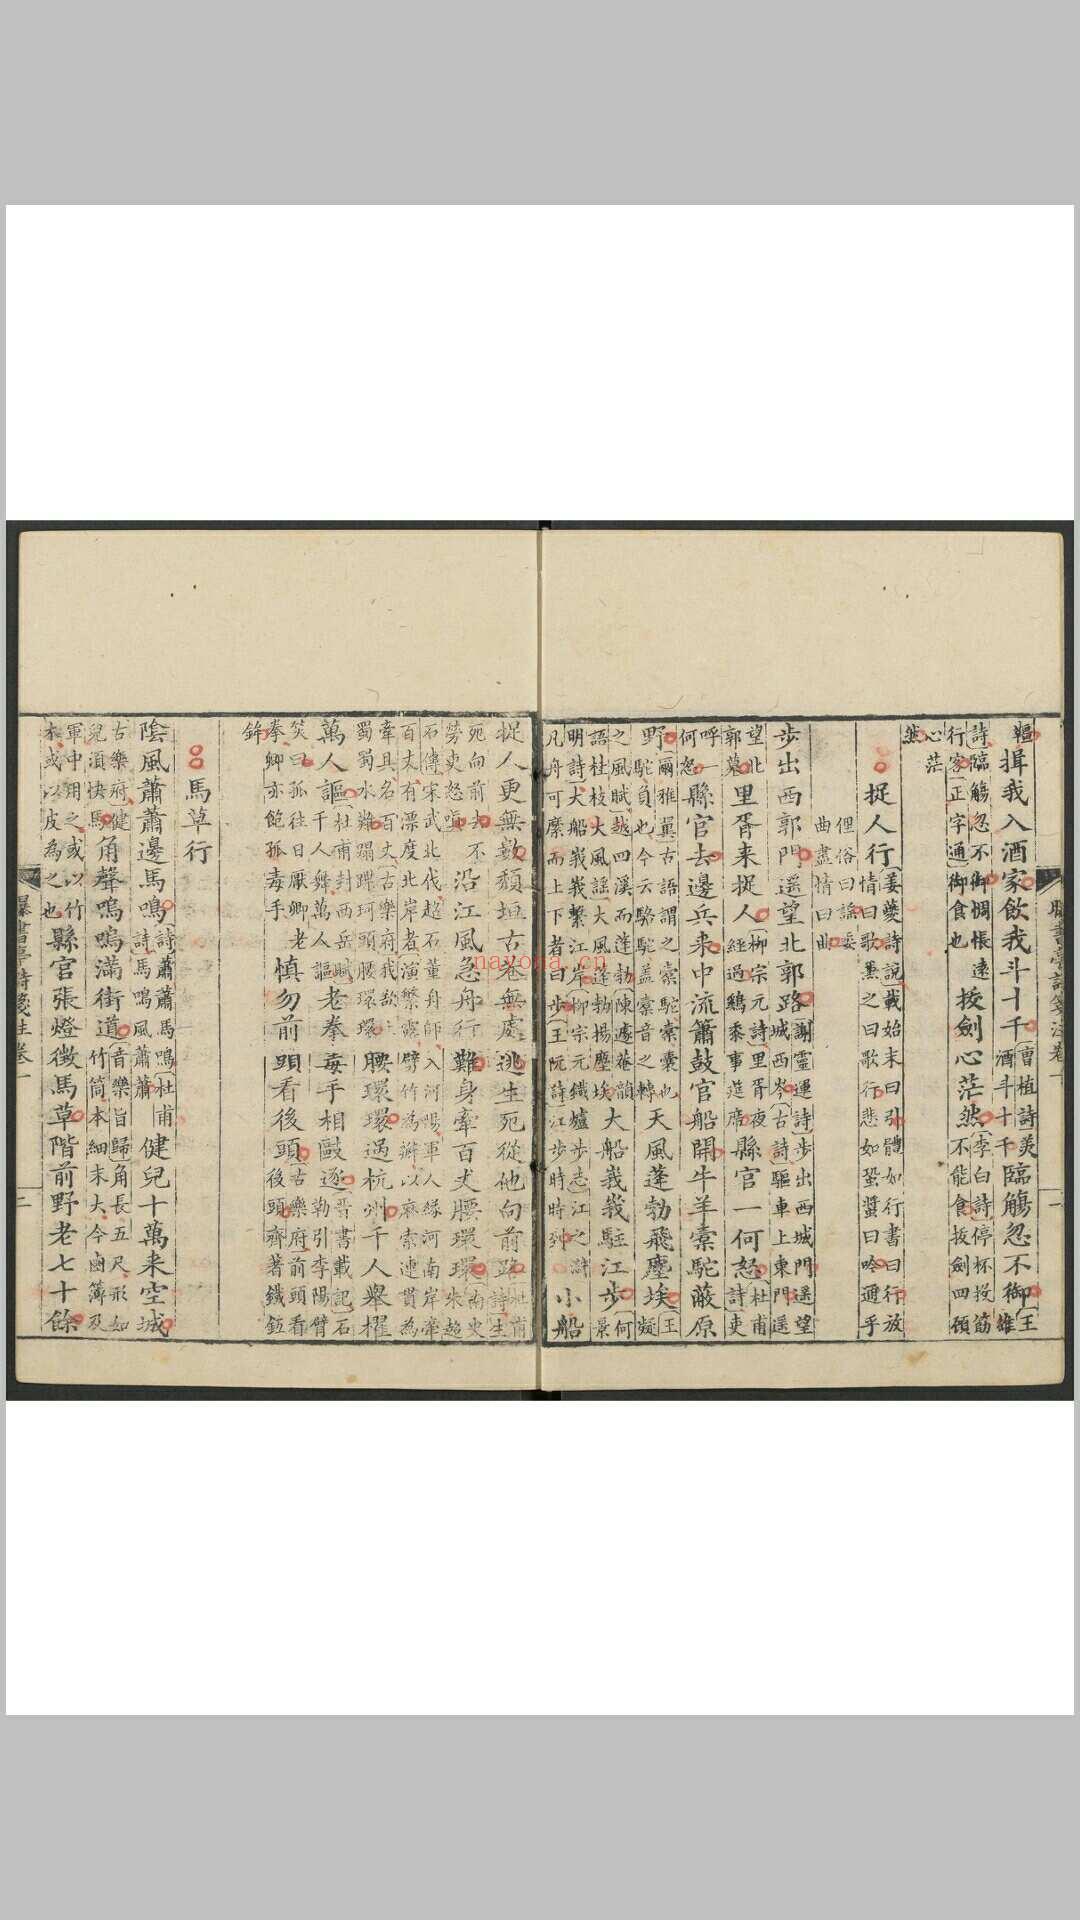 軀揖我入酒家飲我斗十千曹植詩美酒斗十千臨觴忽不御王維
詩臨觴忽不御惆悵遠行客正字通御食也拔劍心茫然李白詩停杯投筯不能食拔劍四顧
心茫然
捉人行姜夔詩說載始末曰引體如行書曰行放情曰歌兼之曰歌行悲如蛩螿曰吟通乎
俚俗曰謠委曲盡情曰曲
步出西郭門遥望北郭路謝靈運詩步出西城門遥望城西岑古詩驅車上東門遥
望北郭墓里胥来捉人柳宗元詩里胥夜經過雞黍事筵席縣官一何怒杜甫詩吏
呼一何怒縣官去邊兵来中流簫鼓官船開牛羊橐駝蔽原
野爾雅翼古語謂之橐駝橐囊也駝負也今云駱駝蓋橐音之轉天風蓬勃飛塵埃王凝
之風賦越四溪而蓬勃陳遽菴韻語桂枝大風謠大風蓬勃揚塵埃大船峩峩駐江步何景
明詩大船峩峩繫江岸柳宗元鐵爐步志江之滸凡舟可縻而上下者曰步王阮詩江步時時到小船
捉人更無數頹垣古巷無處逃生死從他向前路杜甫詩生
死向前去不勞吏怒嗔沿江風急舟行難身牽百丈腰環環南史朱超
石傳宋武北伐超石董舟師入河陽軍人緣河南岸牽百丈有漂度北岸者演繁露劈竹為瓣以麻索連貫為
牽具名百丈古樂府我欲上蜀蜀水難蹋蹀珂頭腰環環腰環環過杭州千人舉櫂
萬人謳杜甫封西岳賦千人舞萬人謳老拳毒手相毆逐晋書載記石勒引李陽臂
笑曰孤往日厭卿老拳卿亦飽孤毒手慎勿前頭看後頭古樂府前頭看後頭齊著鐵鉦
鉾
馬草行
陰風蕭蕭邊馬鳴詩蕭蕭馬鳴杜甫詩馬鳴風蕭蕭健兒十萬来空城
古樂府健兒湏快馬角聲嗚嗚滿街道音樂旨歸角長五尺形如竹筒本細末大今鹵簿及
軍中用之或以竹木或以皮為之也縣官張燈徴馬草階前野老七十餘
曝書亭詩箋注卷一
二
nayona.cn